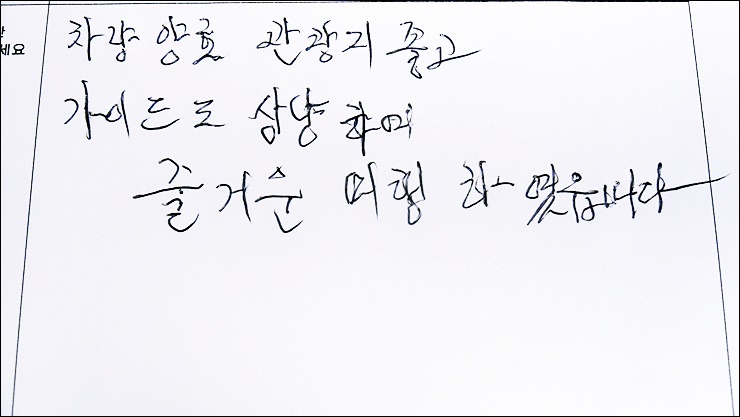 세요
차량 양호 관광지 좋고
가이드도 상냥하며
즐거운 여행 하였읍니다